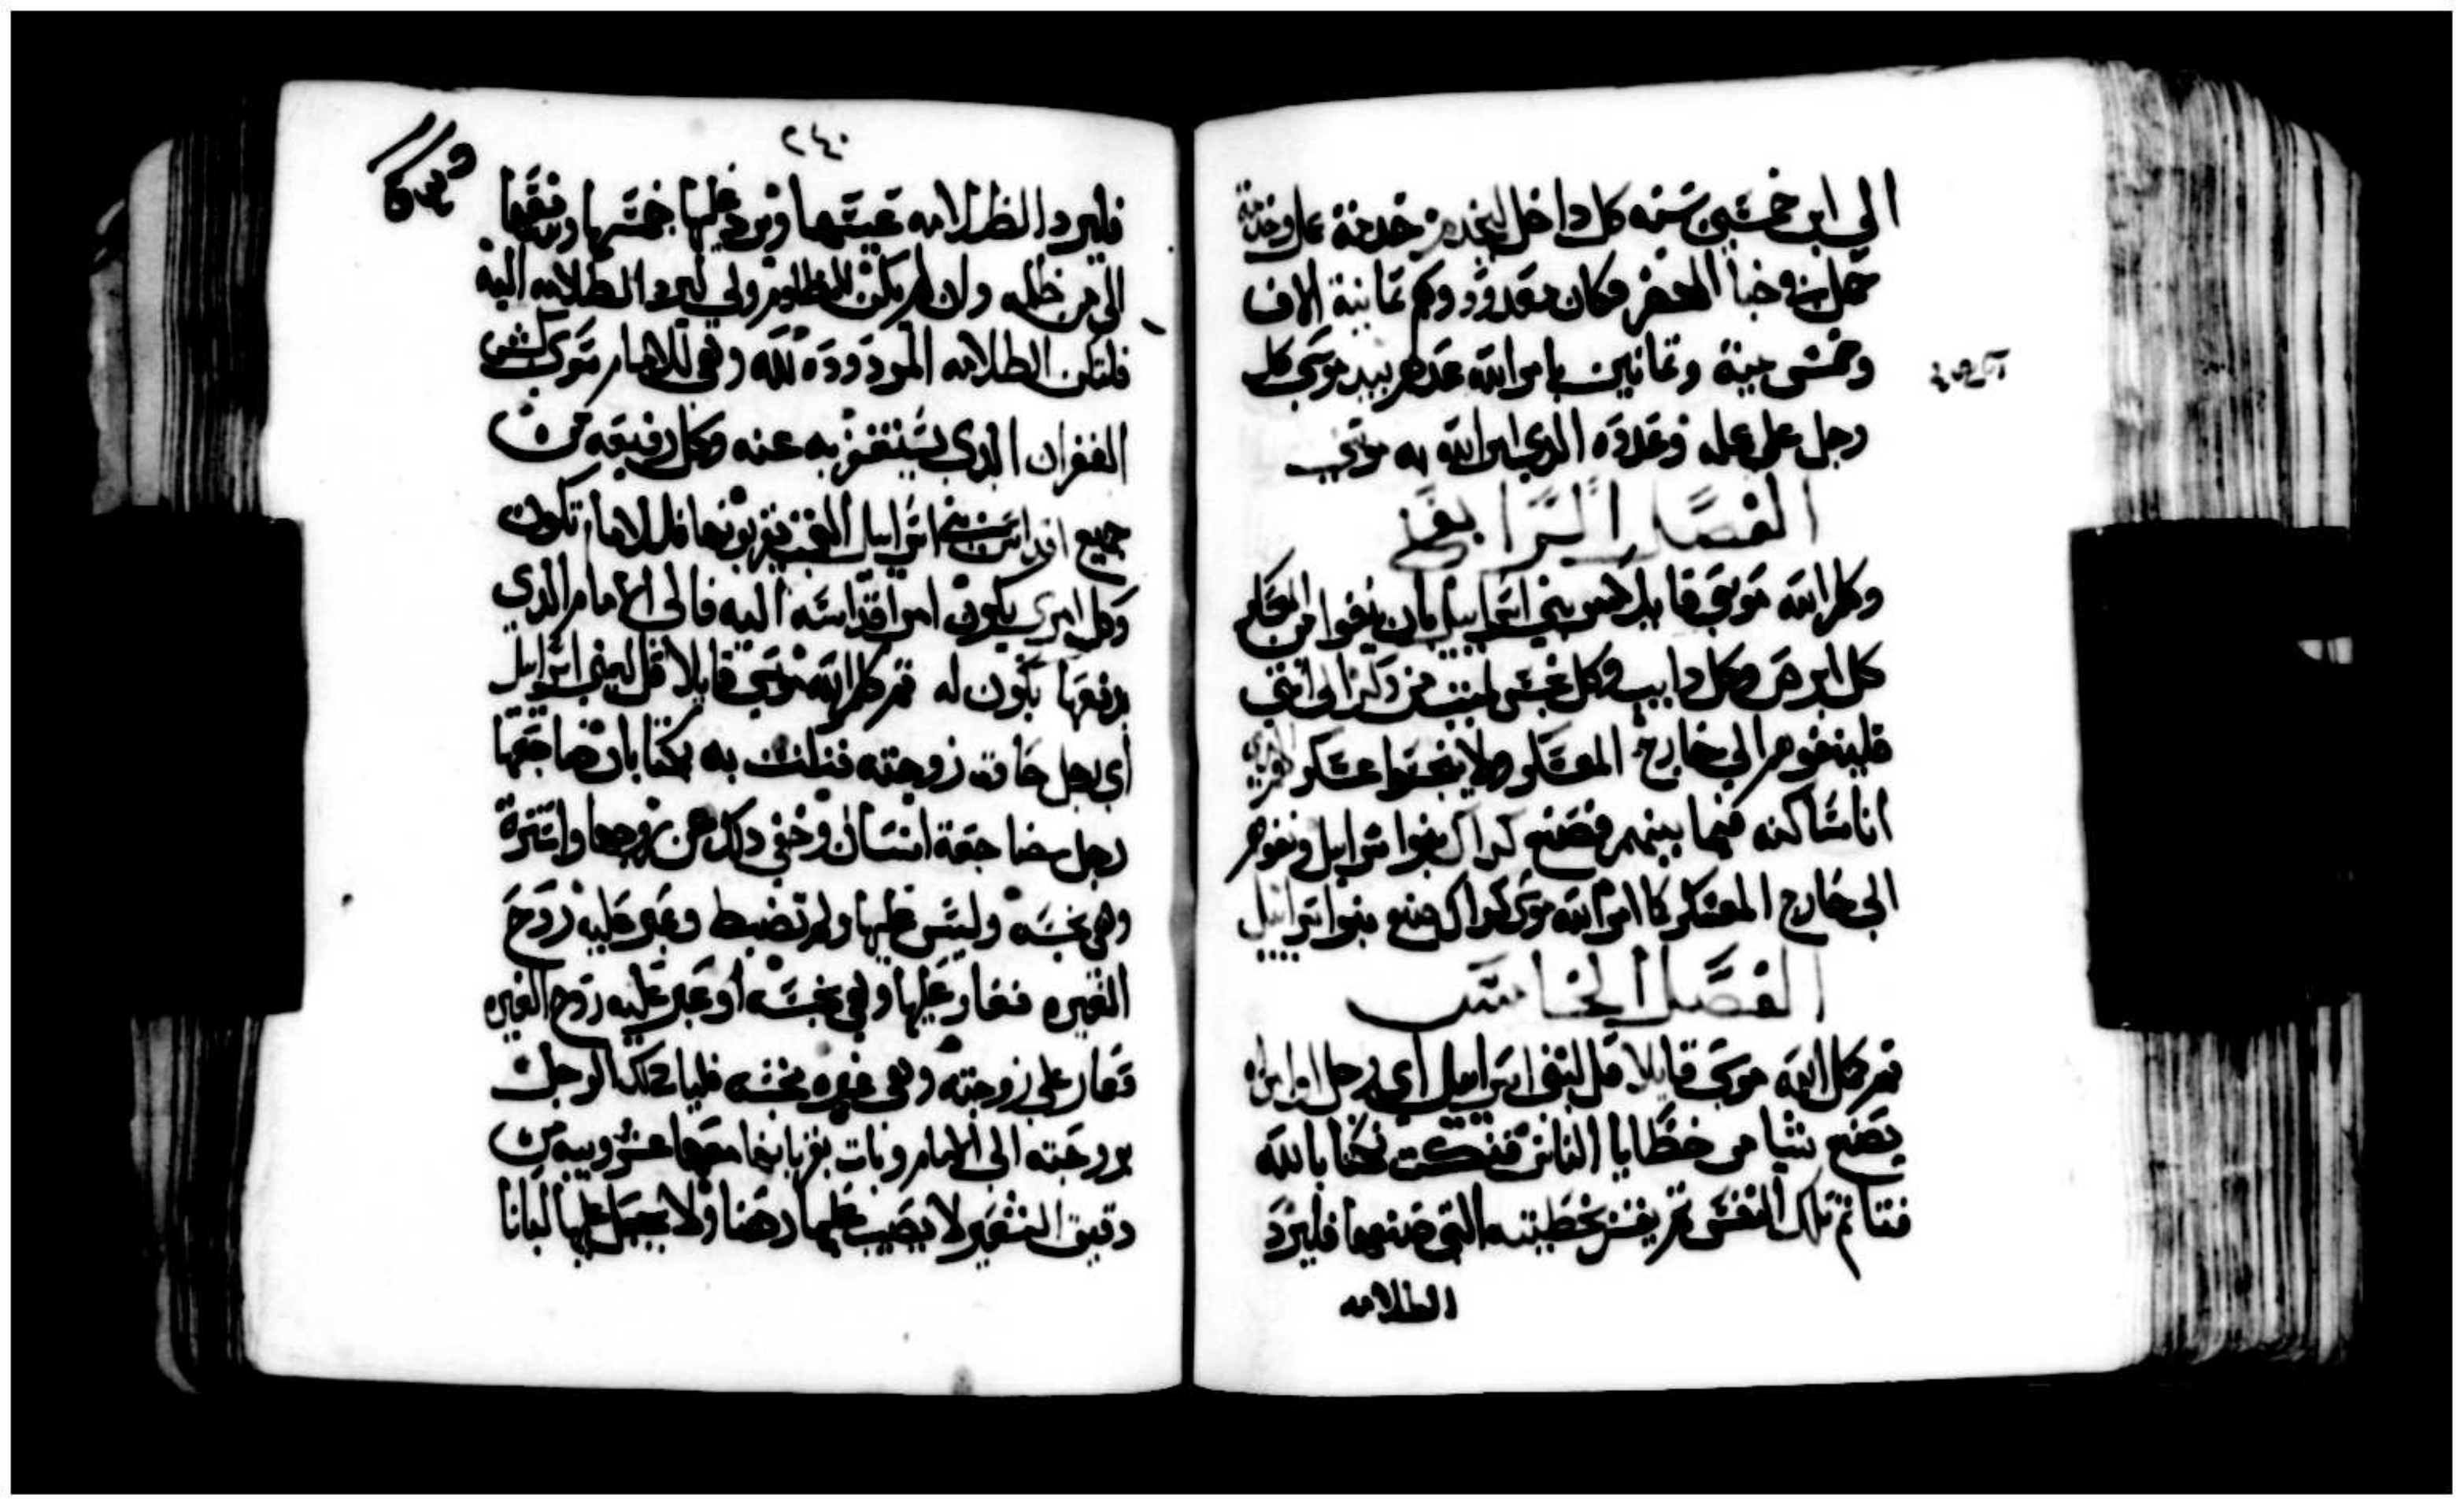 الي ابن خمسين سنه كل داخل ليخدم خدمة عمل وخدمة
حمل في خبا المحضر وكان معدودوهم تمانية الاف
وخمس مية وتمانين بامر الله عدهم بيد موسي كل
رجل علي عمله وعدوده الدي امر الله به موسي
الفصل الرابع
وكلم الله موسي قايلا امر بني اسراييل بان ينفوا من المعسكر
كل ابرص وكل دايب وكل نجس لميت من دكر الي انتي
فلينفوهم الي خارج المعسكر ولا ينجسوا عسكرهم الدي
انا ساكنه فيما بينهم فصنع كداك بنوا اسراييل ونفوهم
الي خارج المعسكر كما امر الله موسي كداك صنع بنوا اسراييل
الفصل الخامس
تم كلم الله موسي قايلا قل لبني اسراييل اي رجل او امراه
يصنع شيا من خطايا الناس فنكت نكتا بالله
فتاتم تلك النفس تم يقر بخطيته التي صنعها فليرد
الطلامه
٢٤٠
فليرد الظلامه عينها ويرد عليها خمسها ويدفعها
الي من ظلمه وان لم يكن للمظلوم ولي ليرد الظلامه اليه
فلتكن الطلامه المردوده لله وهي للامام سوي كبش
الغفران الدي يستغفر به عنه وكل رفيعه من
جميع اقداس بني اسراييل التي يقربونها فللامام تكون
وكل امري يكون امر اقداسه اليه فالي الامام الدي
يدفعها يكون له تم كلم الله موسي قايلا قل لبني اسراييل
اي رجل خانت زوجته فنكتت به نكتا بان ضاجعها
رجل مضاجعة انسان وخفي دلك عن زوجها واستترة
وهي نجسه وليس عليها ولم تضبط وعبر عليه روح
الغيره فغار عليها وهي نجسه او عبر عليه روح الغيره
فغار علي زوجته وهي غيره نجسه فليات دلك الرجل
بزوجته الي الامام ويات بقربانها معها عشر ويبه من
دقيق الشعير لا يصيب عليها دهنا ولا يجعل عليها لبانا